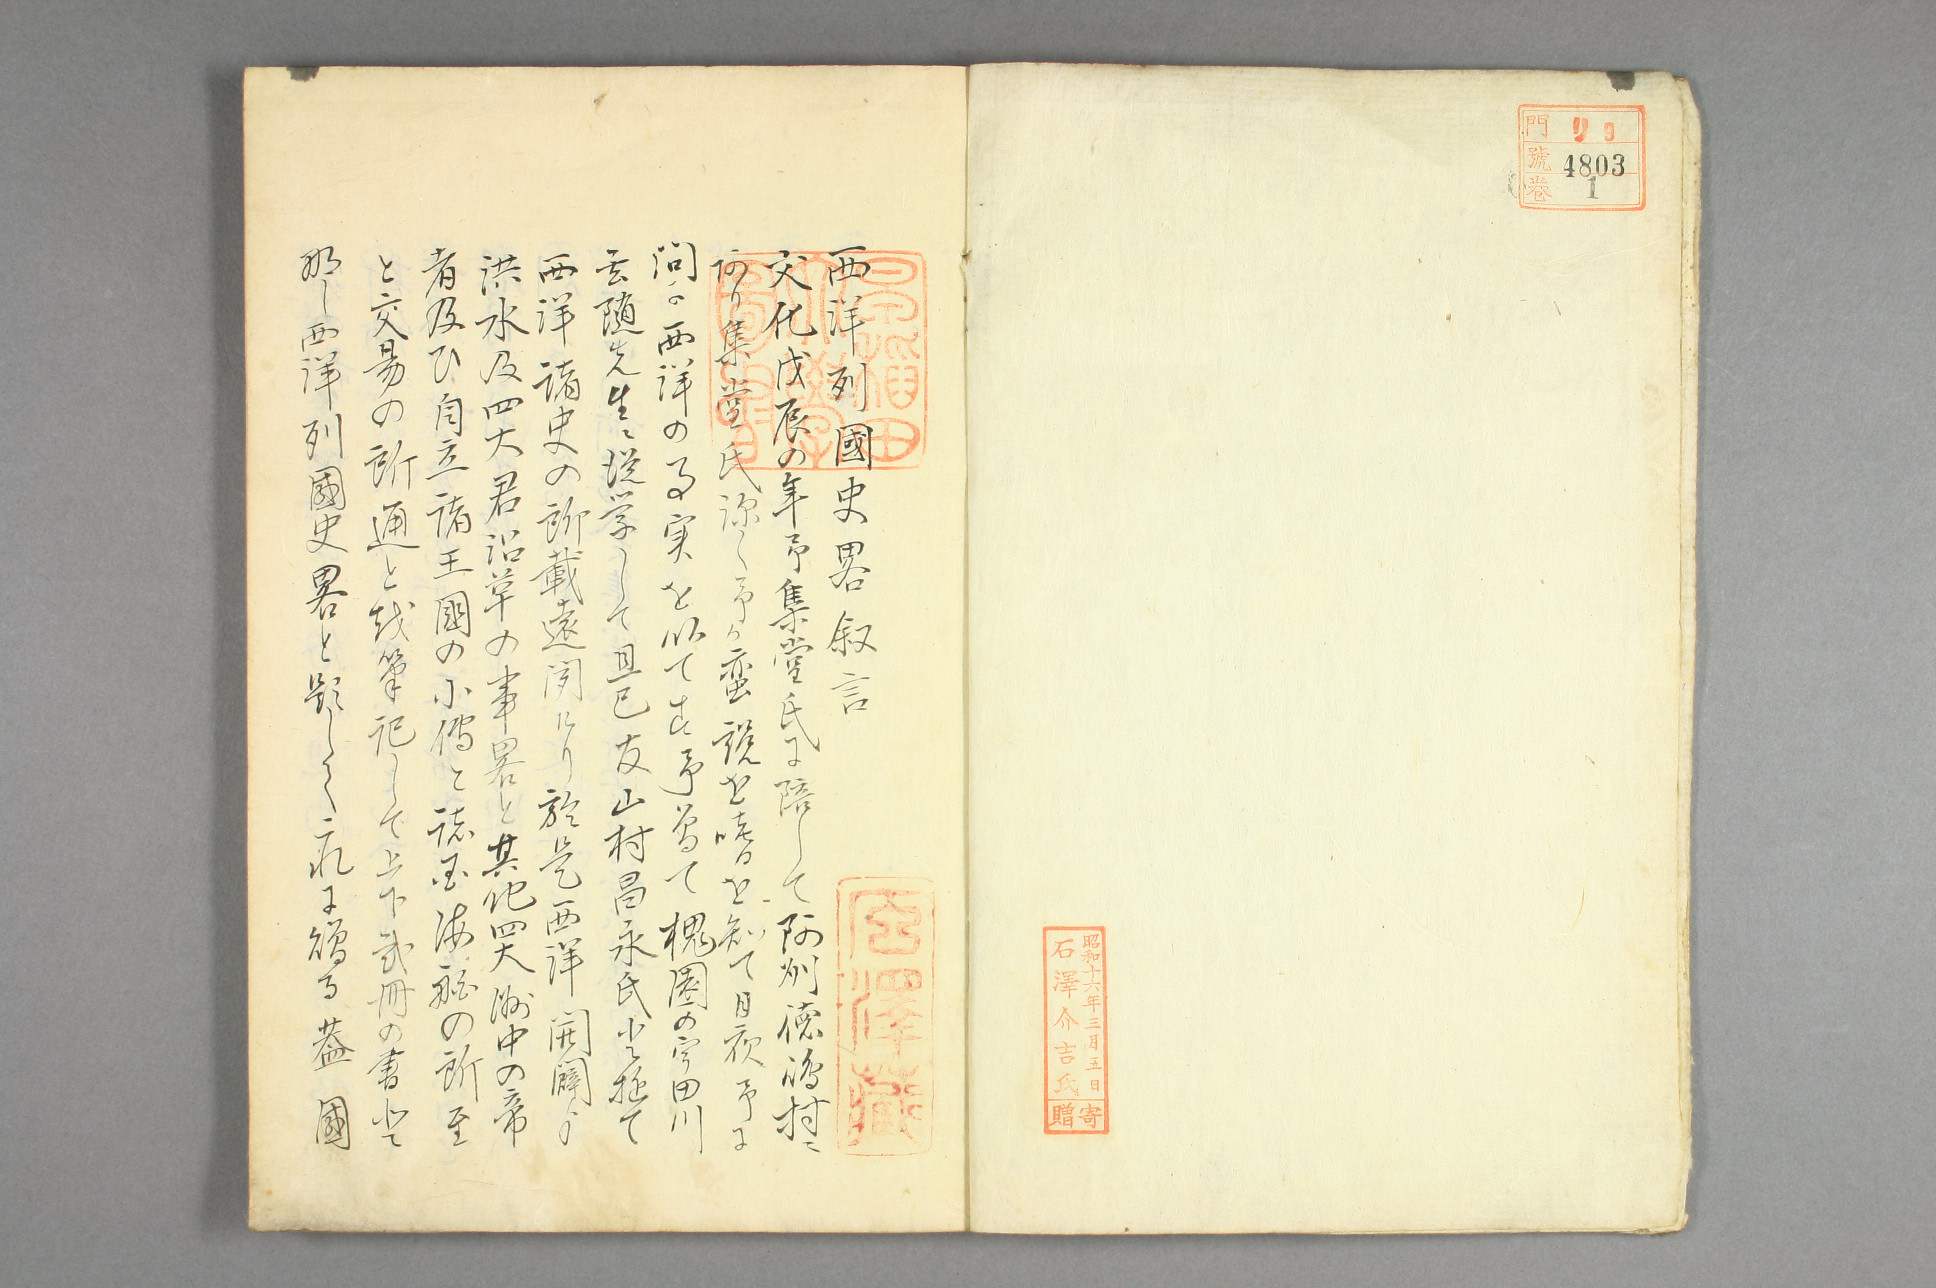 門 リ 8
號 4803
卷 1
昭和十六年三月五日
石澤介吉氏
寄贈
西洋列國史畧叙言
文化戊辰の年予集堂氏に陪して阿州徳嶋村ニ
あり集堂氏深く予か蛮説を嗜を知て日夜予に
問に西洋の事実を以てす予嘗て槐園の宇田川
玄随先生に従学して且已友山村昌永氏など極て
西洋諸史の所載遠聞せり於是西洋開闢より
洪水及四大君沿革の事畧と其他四大洲中の帝
者及ひ自立諸王國の小傳と諸国海舶の所至
と交易の所通とを筆記して上下弐冊の書と
那し西洋列國史畧と題して之に贈る蓋國
石澤藏